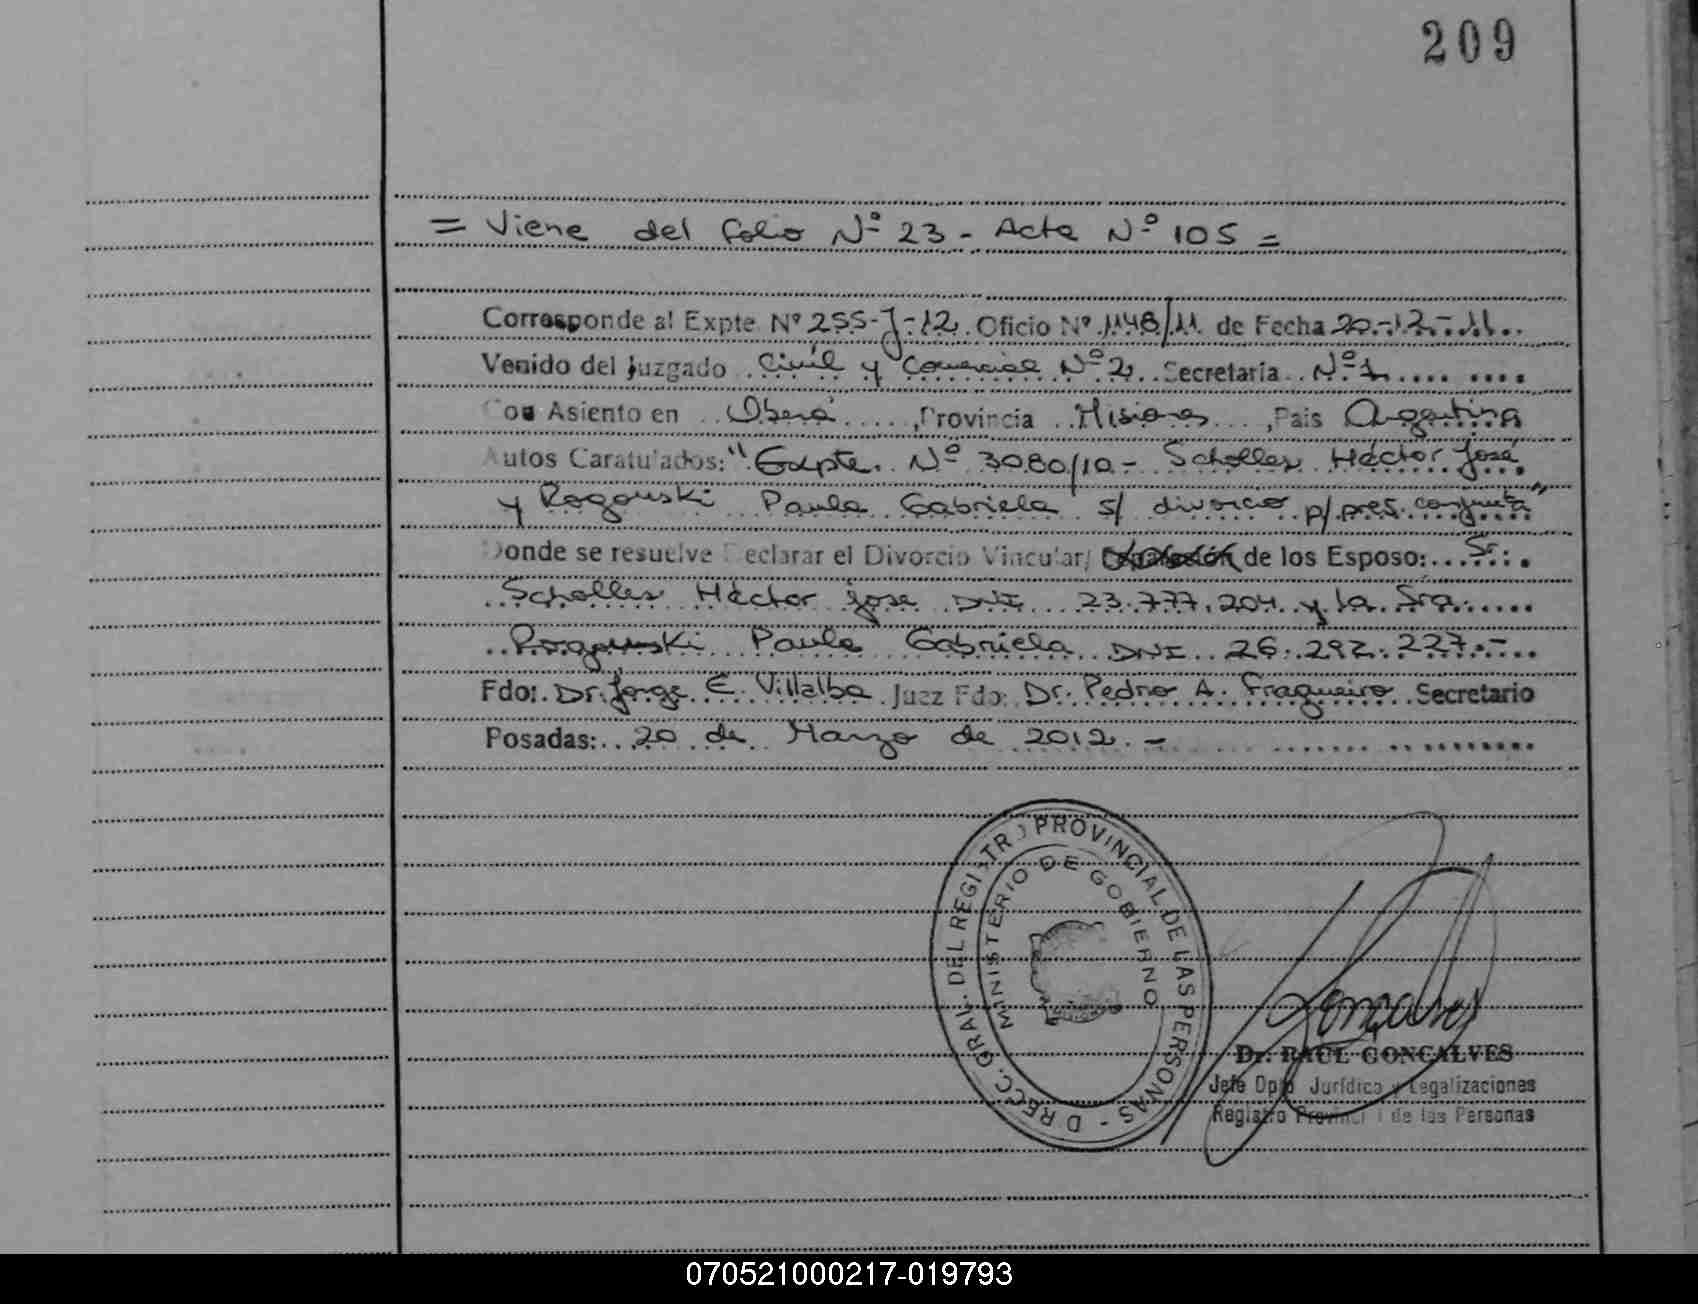 209
= Viene del folio Nº 23 - Acta Nº 105 =
Corresponde al Expte Nº 255-J-12. Oficio Nº 1148/11 de Fecha 20-12-11..
Venido del Juzgado Civil y Comercial Nº 2. Secretaria Nº 1
Con Asiento en Oberá, Provincia Misiones, Pais Argentina
Autos Caratulados: "Expte. Nº 3080/10 - Scholles Héctor José
y Rogowski Paula Gabriela s/ divorcio p/ pres. conjunta"
Donde se resuelve Declarar el Divorcio Vincular/ de los Esposo: Sr.
Scholles Héctor Jose DNI 23.777.204 y la Sra.
Rogowski Paula Gabriela DNI 26.292.227.-
Fdo: Dr. Jorge E. Villalba Juez Fdo: Dr. Pedro A. Fragueiro Secretario
Posadas: 20 de Marzo de 2012. -
DIRECC. GRAL. DEL REGISTRO PROVINCIAL DE LAS PERSONAS -
MINISTERIO DE GOBIERNO
Goncalves
Dr. RAUL GONCALVES
Jefe Dpto Jurídico y Legalizaciones
Registro Provincial de las Personas
070521000217-019793